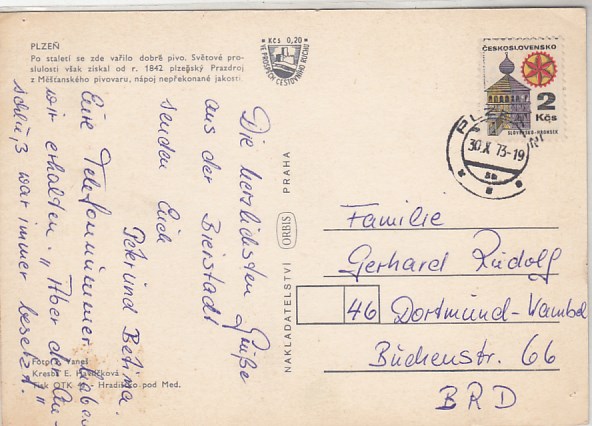 PLZEŇ
Po staletí se zde vařilo dobré pivo. Světové pro-
slulosti však získal od r. 1842 plzeňský Prazdroj
z Měšťanského pivovaru, nápoj nepřekonané jakosti
Kčs 0,20
VE PROSPĚCH CESTOVNÍHO RUCHU
ČESKOSLOVENSKO
2
Kčs
SLOVENSKO-HRONSEK
PLZEŇ
30.X.73-19
5b
Die herzlichsten Grüße
aus der Bierstadt
senden Euch
Peter und Betina.
Eure Telefonnummer haben
wir erhalten. "Aber der An-
schluß war immer besetzt."
NAKLADATELSTVÍ ORBIS PRAHA
Familie
Gerhard Rudolf
46 Dortmund-Wambel
Buchenstr. 66
BRD
Foto Vaneš
Kresba E. Hašková
Tisk OTK Hradisko pod Med.